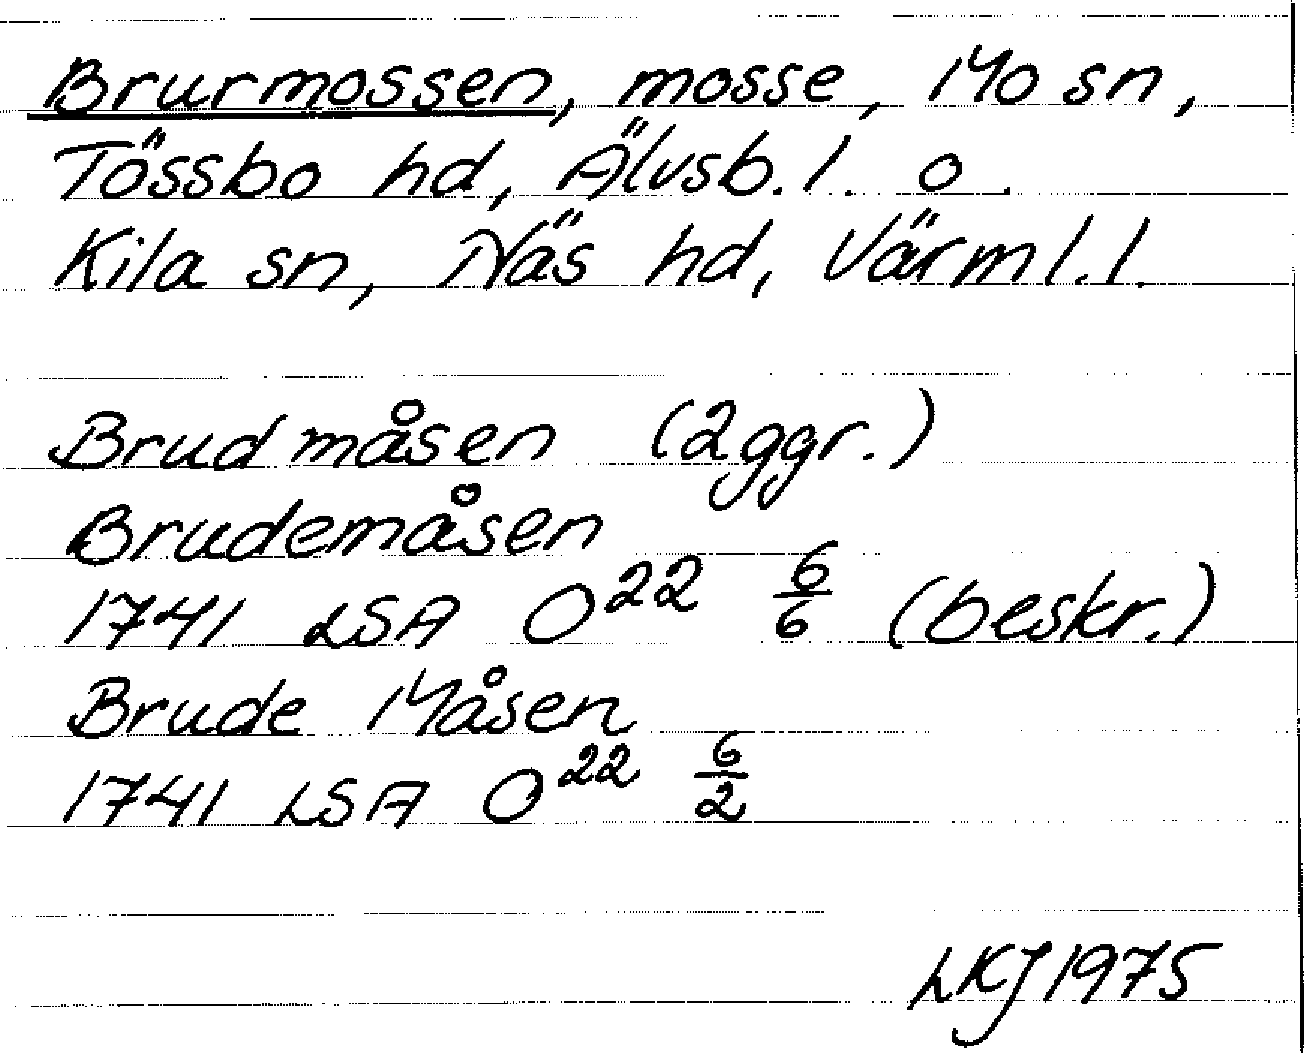 Brurmossen, mosse, Mo sn,
Tössbo hd, Älvsb. l. o.
Kila sn, Näs hd, Värml. l.
Brudmåsen (2ggr.)
Brudemåsen
1741 LSA O²² 6/6 (beskr.)
Brude Måsen
1741 LSA O²² 6/2
LKJ 1975